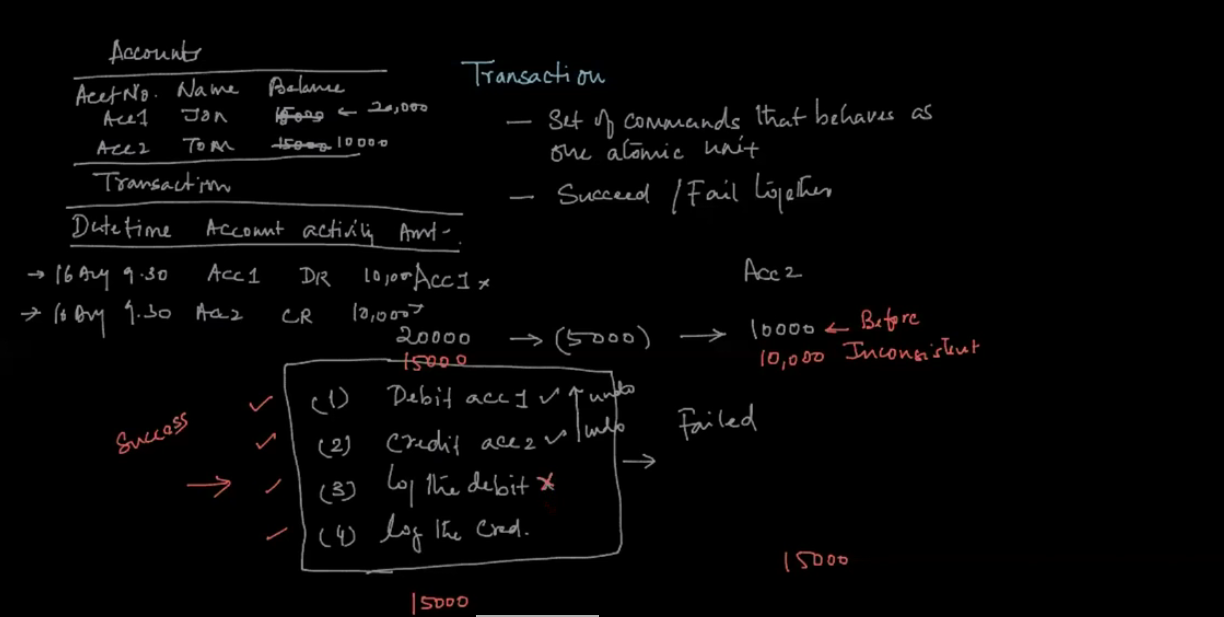 Accounts
Acct No. Name Balance
Acc1 Jon 15000 ← 20,000
Acc2 Tom 15000 10000
Transaction
Datetime Account activity Amt.
→ 16 Aug 9.30 Acc1 DR 10,000
→ 16 Aug 9.30 Acc2 CR 10,000
Transaction
— Set of commands that behaves as
one atomic unit
— Succeed / Fail together
Acc1 x
Acc2
20000 → (5000) → 10000 ← Before
15000
10,000 Inconsistent
Success
✓ (1) Debit acc 1 ✓ ↑ undo
✓ (2) Credit acc 2 ✓ undo
→ ✓ (3) Log the debit x
✓ (4) Log the Cred.
→ Failed
15000
15000